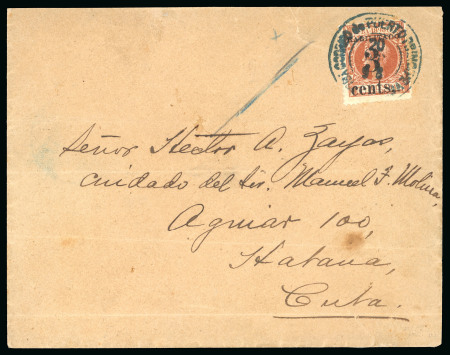 20
cents.
Señor Hector A. Zayas,
Cuidado del Sr. Manuel F. Molina,
Aguiar 100,
Habana,
Cuba.